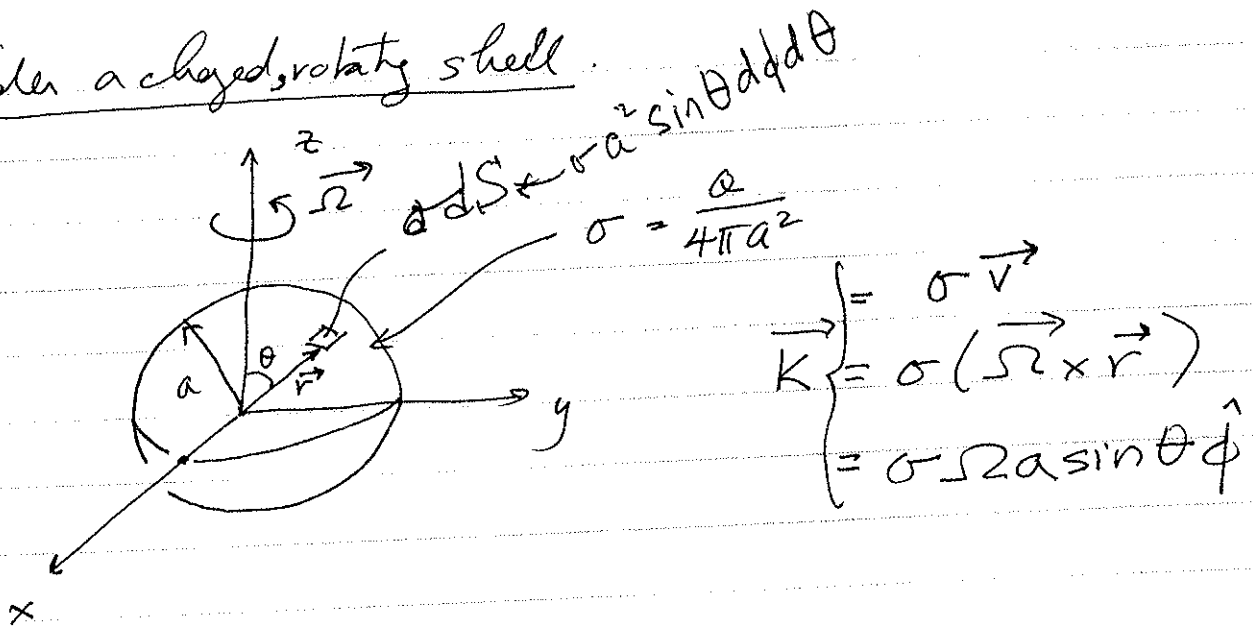 a charged, rotating shell.
σ dS ← σ a² sin θ dϕ dθ
z
Ω⃗
σ = Q / 4πa²
θ
a
r⃗
y
x
K⃗ { = σ v⃗
= σ (Ω⃗ × r⃗)
= σ Ω a sin θ ϕ̂